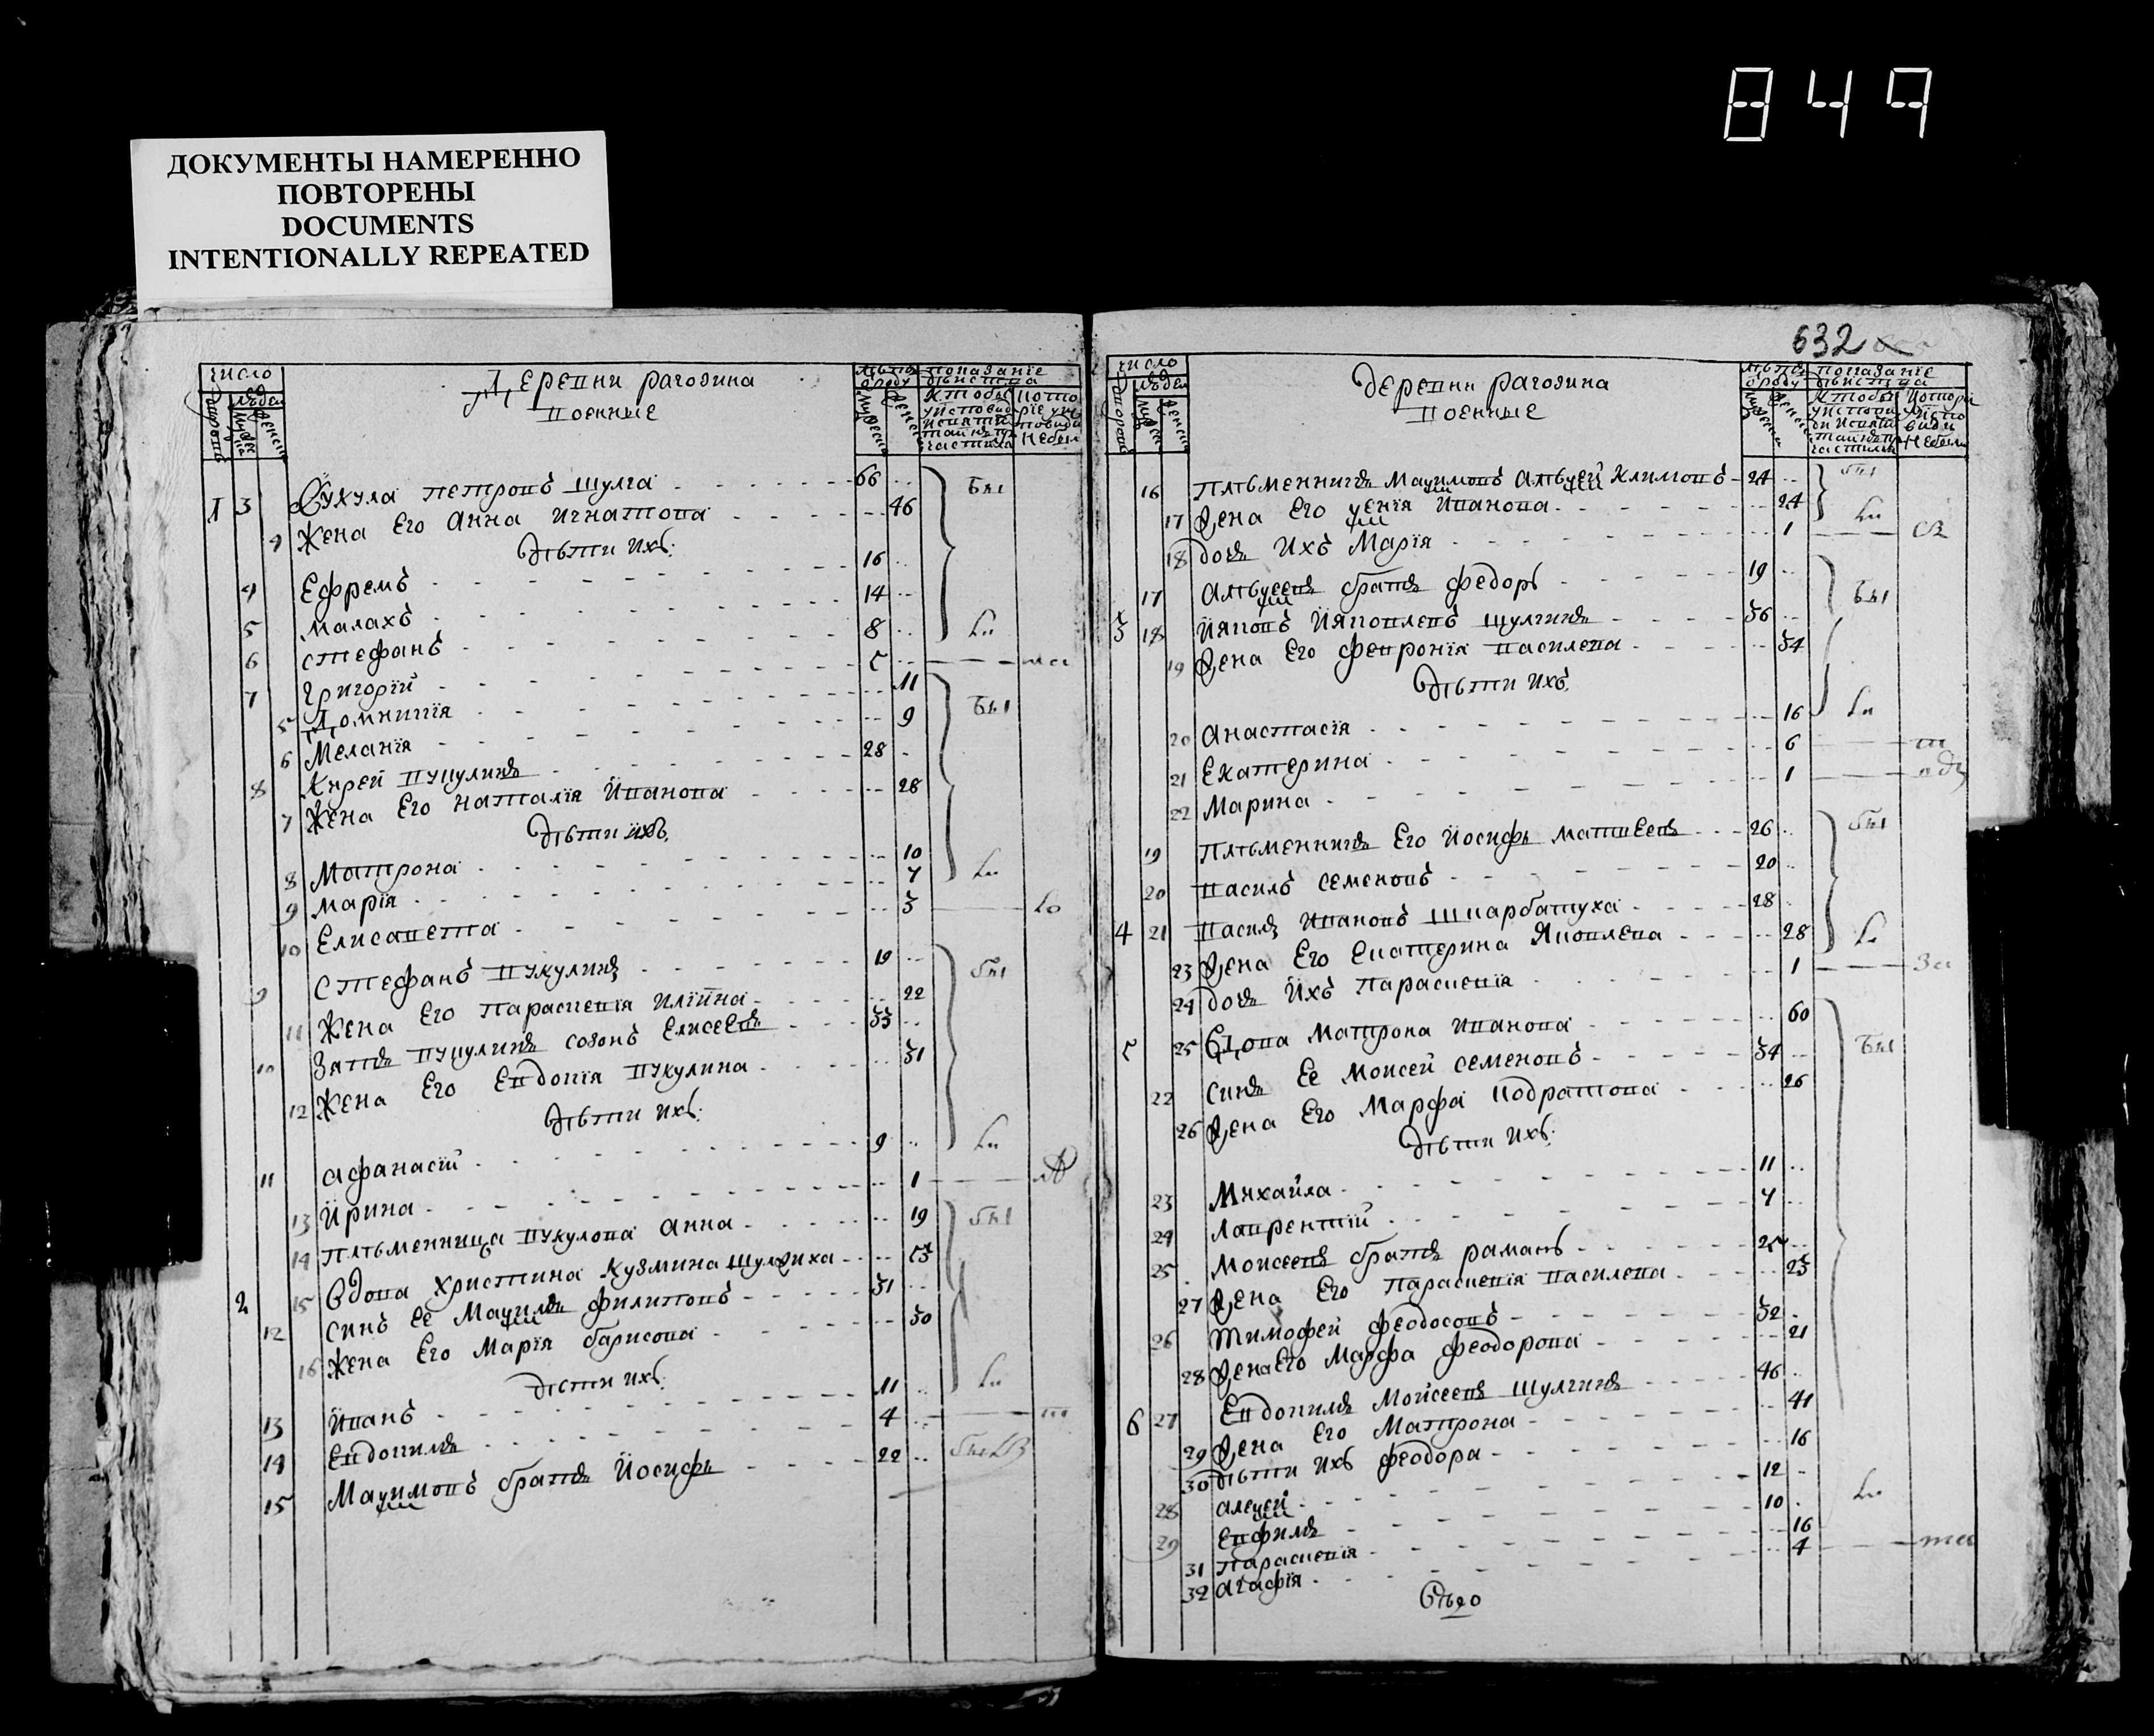 849
ДОКУМЕНТЫ НАМЕРЕННО
ПОВТОРЕНЫ
DOCUMENTS
INTENTIONALLY REPEATED
число
людей
Деревни рагозина
военные
лѣта
ѿроду
показаніе
дѣйства
1 3 Вукула петровъ шулга 66
4 Жена Его Анна игнатова 46
дѣти ихъ:
4 Ефремъ 16
5 малахъ 14
6 стефанъ 8
7 григорїй 5
5 Домникїя 11
6 Меланїя 9
8 Кирей Вукулинъ 28
7 Жена Его наталїя Їванова 28
дѣти їхъ
8 Матрона 10
9 марїя 7
10 Елисавета 3
9 стефанъ Вукулинъ 19
11 Жена Его параскевїя илїина 22
10 Зать вукулинъ созонъ Елисеевъ 33
12 Жена Его Евдокїя вукулина 31
дѣти ихъ:
11 афанасїй 9
13 Їрина 1
14 племенница вукулова анна 19
2 15 вдова христина кузмина шулжиха 53
12 синъ ее Маѯимъ филиповъ 31
16 Жена Его Марїя барисова 30
дѣти ихъ:
13 Їванъ 11
14 Евдокимъ 4
15 Маѯимовъ братъ Йосифъ 22
632
число
людей
деревни рагозина
военные
лѣта
ѿроду
показанїе
дѣйства
16 племенникъ Маѯимовъ Алеѯей Климовъ 24
17 жена Его ѯенїя иванова 24
18 дочь ихъ Марїя 1
17 Алеѯеевъ братъ федоръ 19
3 18 Їяковъ Їяковлевъ шулгинъ 56
19 жена Его февронїя василева 54
дѣти ихъ
20 Анастасїя 16
21 Екатерина 6
22 Марина 1
19 племенникъ Его Йосифъ матвеевъ 26
20 василъ семеновъ 20
4 21 василъ ивановъ шкарбатуха 28
23 жена Его Екатерина Яковлева 28
24 дочь Їхъ параскевїя 1
5 25 вдова Матрона иванова 60
22 синъ Ее моисей семеновъ 34
26 жена Его Марфа кодратова 26
дѣти ихъ:
23 Михайла 11
24 лаврентїй 7
25 моисеевъ братъ раманъ 25
27 жена Его параскевїя василева 23
26 тимофей феодосовъ 32
28 жена Его марфа феодорова 21
6 27 Евдокимъ Мойсеевъ шулгинъ 46
29 жена Его Матрона 41
30 дѣти ихъ феодора 16
28 алеѯей 12
29 Евфимъ 10
31 параскевїя 16
32 агафїя 4